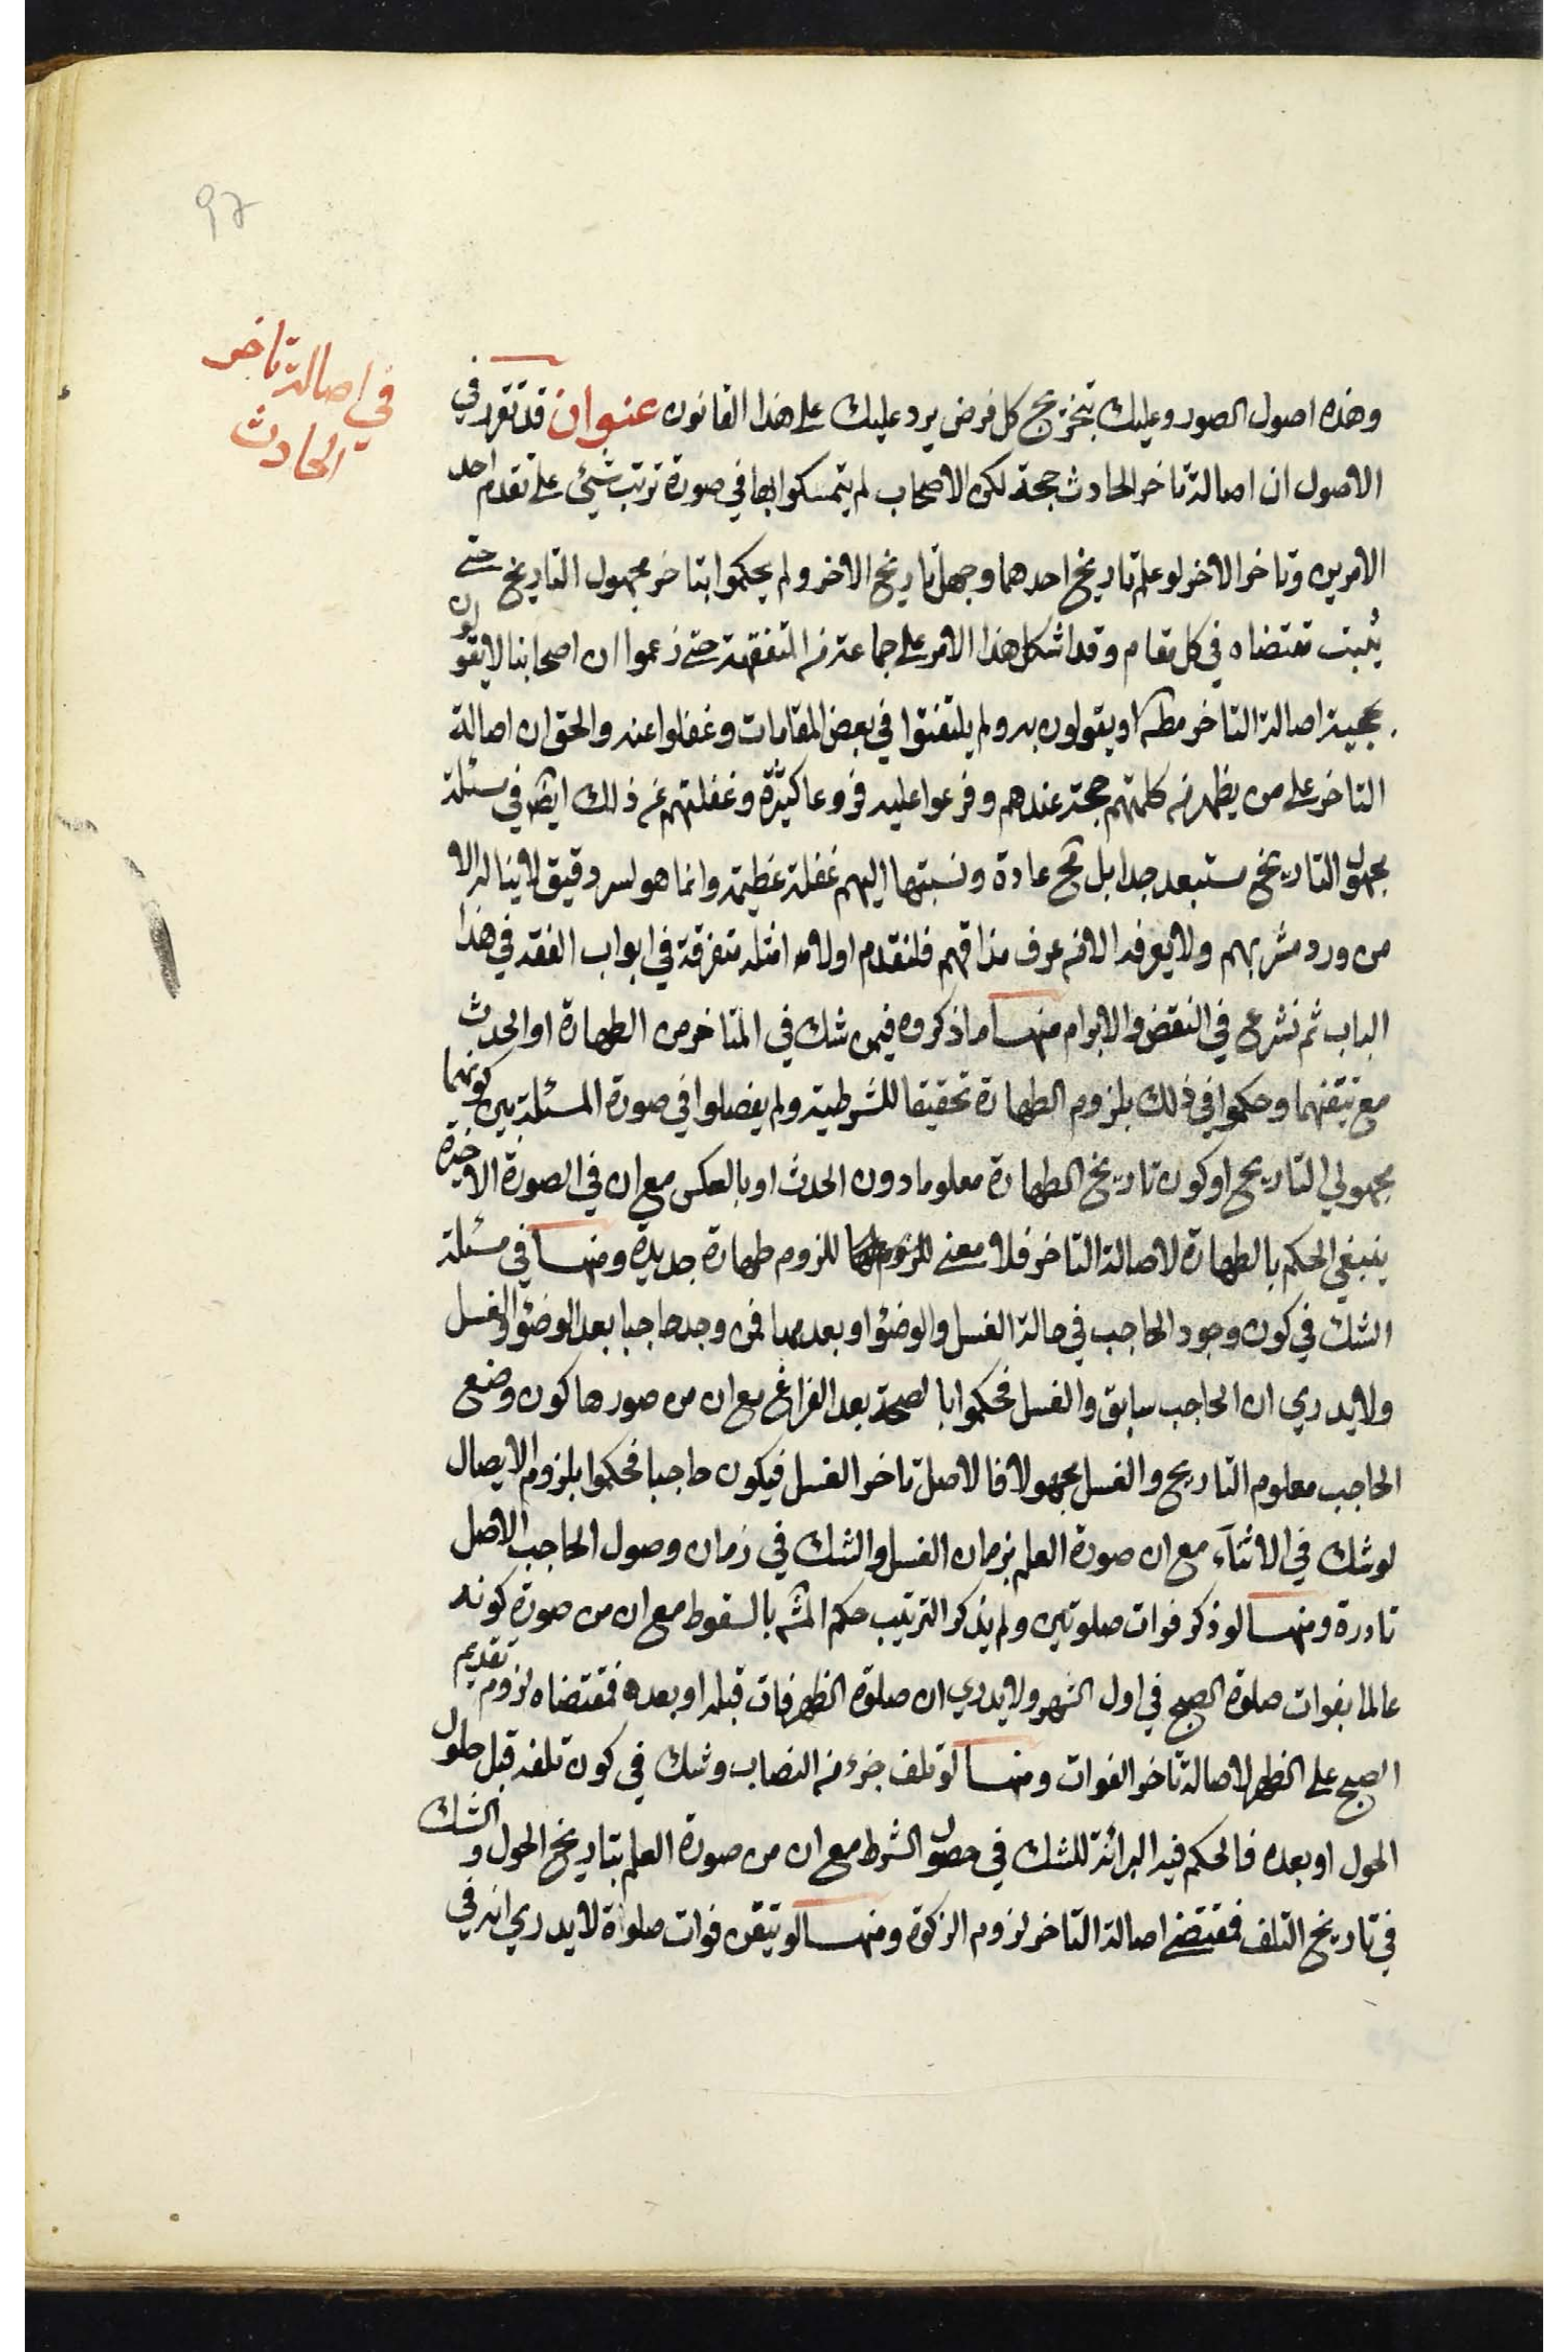 97
في اصالة تاخر
الحادث
وهذه اصول الصور وعليك بتخريج كل فرض يرد عليك على هذا القانون عنوان قد تقرر في
الاصول ان اصالة تاخر الحادث حجة لكن الاصحاب لم يتمسكوا بها في صورة ترتب شيئ على تقدم احد
الامرين وتاخر الاخر لو علم تاريخ احدهما وجهل تاريخ الاخر ولم يحكموا بتاخر مجهول التاريخ حتى
يثبت مقتضاه في كل مقام وقد اشكل هذا الامر على جماعة من المتفقهة حتى زعموا ان اصحابنا لايقولون
بحجية اصالة التاخر مطلقا او يقولون به ولم يلتفتوا في بعض المقامات وغفلوا عنه والحق ان اصالة
التاخر على من يظهر من كلمتهم حجة عندهم وفرعوا عليه فروعا كثيرة وغفلتهم عن ذلك ايض في مسئلة
مجهول التاريخ مستبعد جدا بل مح عادة ونسبتها اليهم غفلة عظيمة وانما هو لسر دقيق لاينا له الا
من ورد مشربهم ولا يعرفه الا من عرف مذاقهم فلنقدم اولا امثلة متفرقة في ابواب الفقه في هذا
الباب ثم نشرع في النقض والابرام منها ما ذكروه فيمن شك في المتاخر من الطهارة او الحدث
مع تيقنهما وحكموا في ذلك بلزوم الطهارة تحقيقا للشرطية ولم يفصلوا في صورة المسئلة بين كونهما
مجهولي التاريخ او كون تاريخ الطهارة معلوما دون الحدث او بالعكس مع ان في الصورة الاخيرة
ينبغي الحكم بالطهارة لاصالة التاخر فلا معنى للزوم طهارة جديدة ومنها في مسئلة
الشك في كون وجود الحاجب في حالة الغسل والوضؤ او بعدهما فمن وجد حاجبا بعد الوضؤ والغسل
ولا يدري ان الحاجب سابق والغسل فحكموا بالصحة بعد الفراغ مع ان من صورها كون وضع
الحاجب معلوم التاريخ والغسل مجهولا فالاصل تاخر الغسل فيكون حاجبا فحكموا بلزوم الايصال
لو شك في الاثنآء مع ان صورة العلم بزمان الغسل والشك في زمان وصول الحاجب الاصل
نادرة ومنها لو ذكر فوات صلوتين ولم يذكر الترتيب حكم المشه بالسقوط مع ان من صورة كونه
عالما بفوات صلوة الصبح في اول الشهر ولايدري ان صلوة الظهر فات قبله او بعده فمقتضاه لزوم تقديم
الصبح على الظهر لاصالة تاخر الفوات ومنها لو تلف جزء من النصاب وشك في كون تلفه قبل حلول
الحول او بعده فالحكم فيه البرائة للشك في حصول الشرط مع ان من صورة العلم بتاريخ الحول والشك
في تاريخ التلف فمقتضى اصالة التاخر لزوم الزكوة ومنها لو تيقن فوات صلوة لايدري انه في